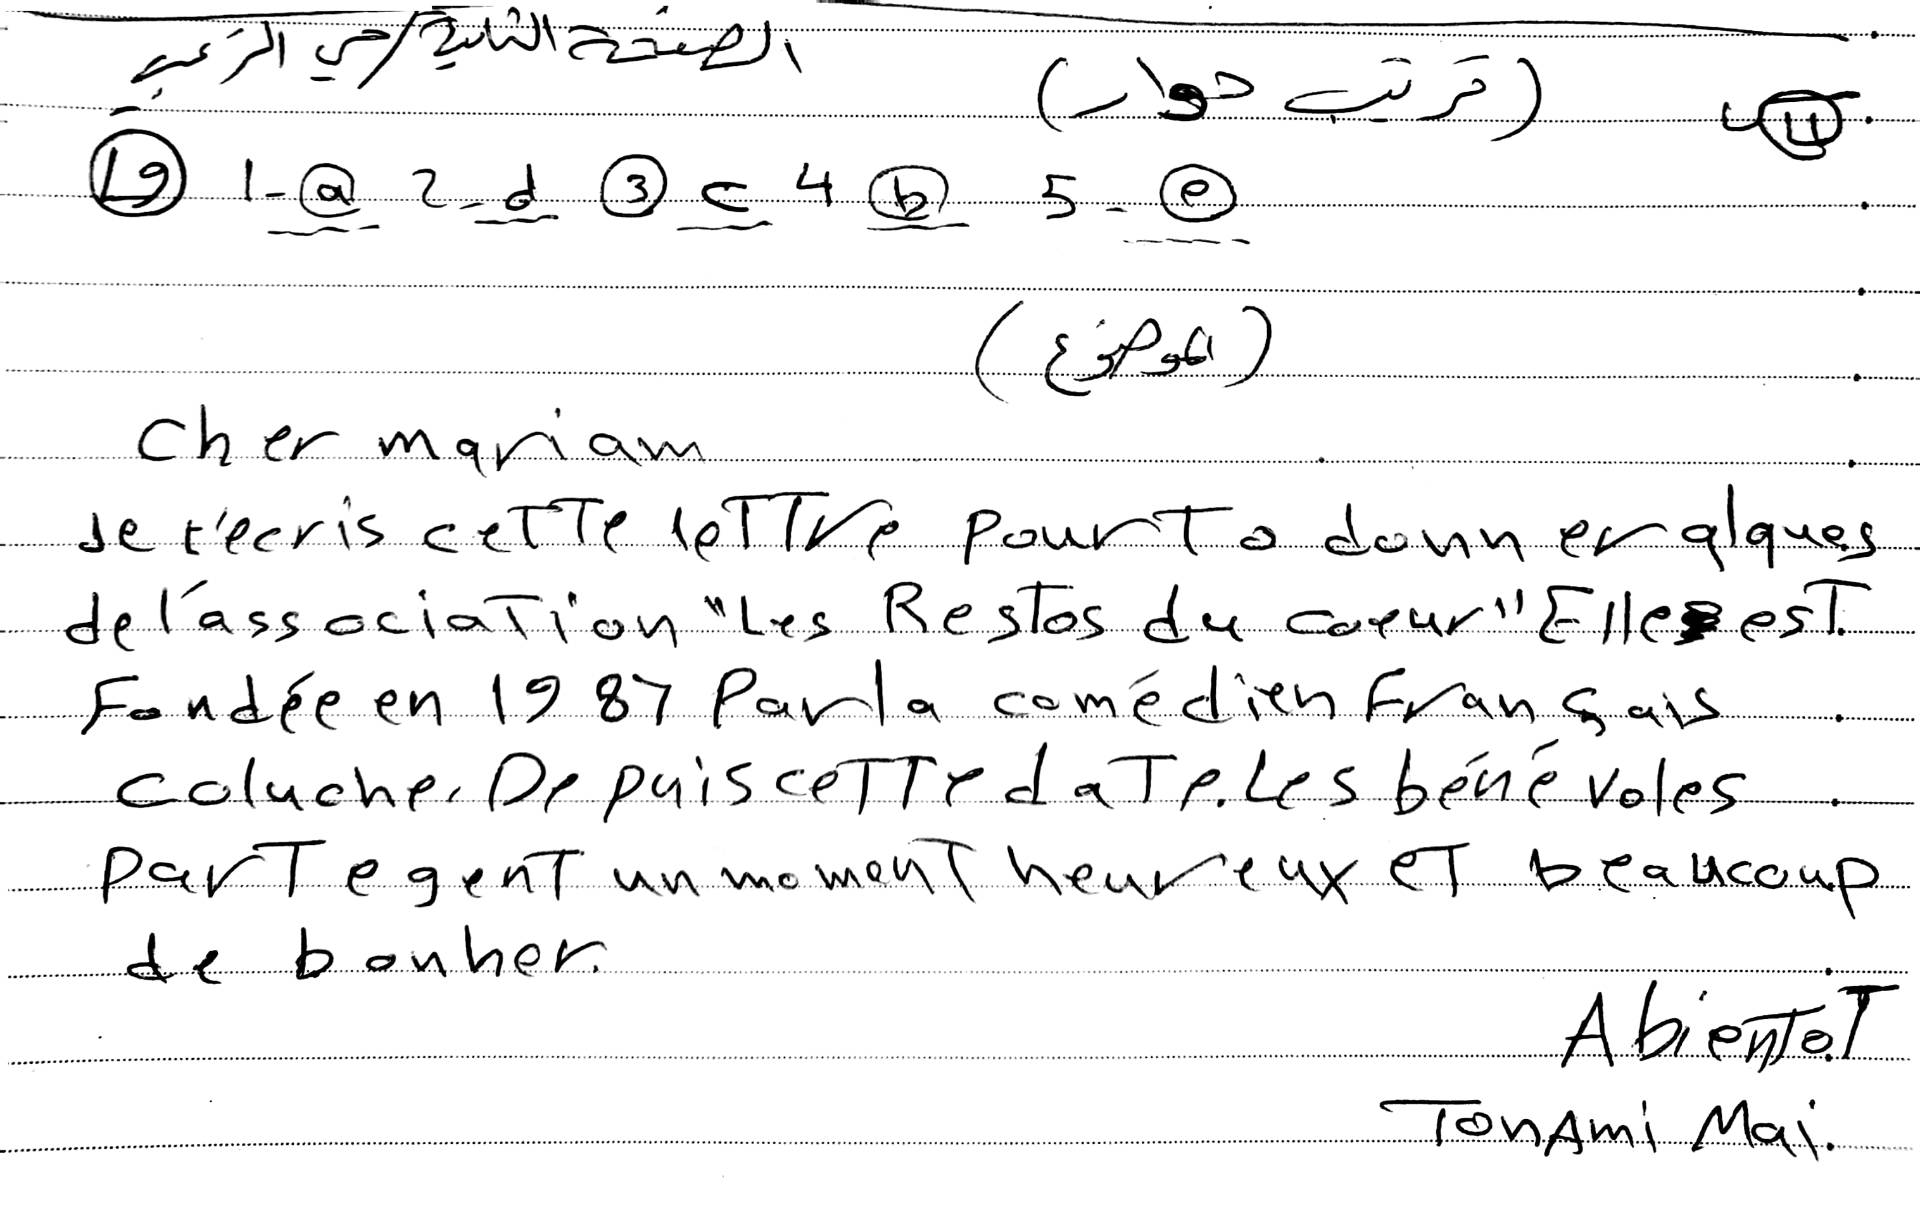 الصفحة الثانية / حي الزعبي
(ترتيب حوار)
19 1-a 2-d 3 c 4 b 5-e
(الموضوع)
Cher mariam
Je t'ecris cette lettre pour to donner qlques
de l'association "Les Restos du coeur" Elle est
Fondée en 1987 Par la comédien français
coluche. Depuis cette date. Les bénévoles
partegent un moment heureux et beaucoup
de bonher.
A bientot
Ton Ami Mai.